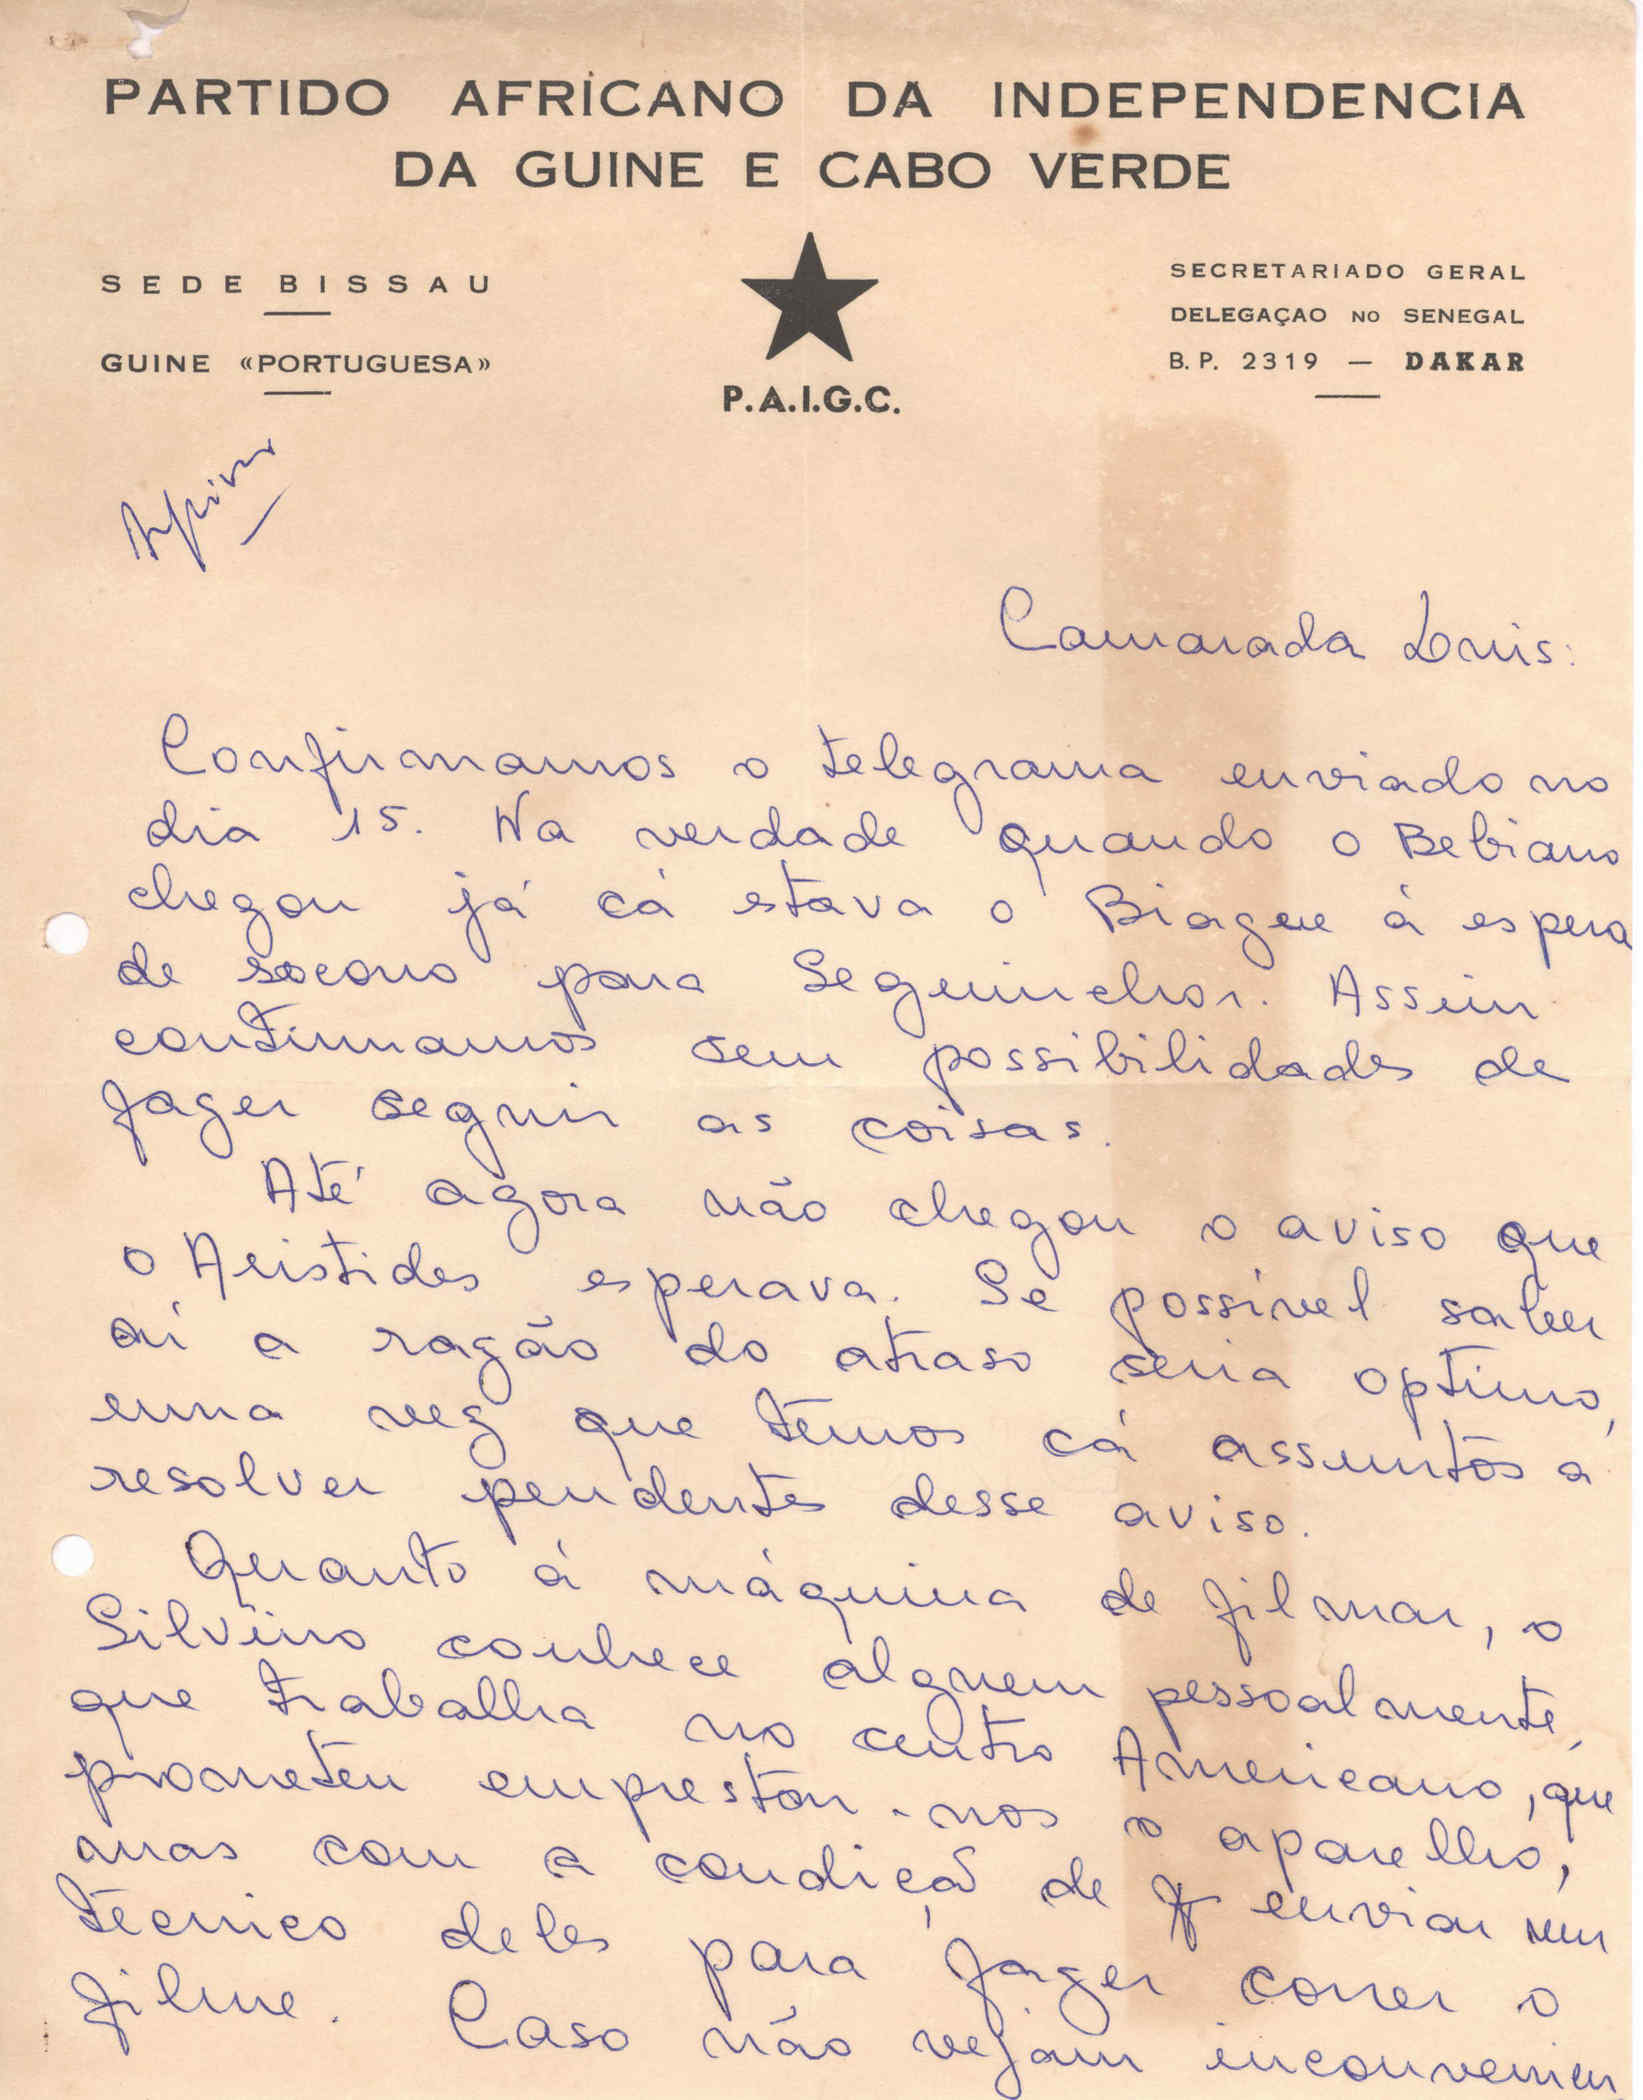 PARTIDO AFRICANO DA INDEPENDENCIA
DA GUINE E CABO VERDE
SEDE BISSAU
GUINE «PORTUGUESA»
P.A.I.G.C.
SECRETARIADO GERAL
DELEGAÇAO NO SENEGAL
B.P. 2319 — DAKAR
Camarada Luis:
Confirmamos o telegrama enviado no
dia 15. Na verdade quando o Bebiano
chegou já cá estava o Biague à espera
de socorro para Seguinchor. Assim
continuamos sem possibilidades de
fazer seguir as coisas.
Até agora não chegou o aviso que
o Aristides esperava. Se possível saber
aí a razão do atraso seria optimo,
uma vez que temos cá assuntos a
resolver pendentes desse aviso.
Quanto à máquina de filmar, o
Silvino conhece alguem pessoalmente,
que trabalha no centro Americano, que
prometeu emprestar-nos o aparelho,
mas com a condição de enviar um
técnico deles para fazer correr o
filme. Caso não vejam inconvenien